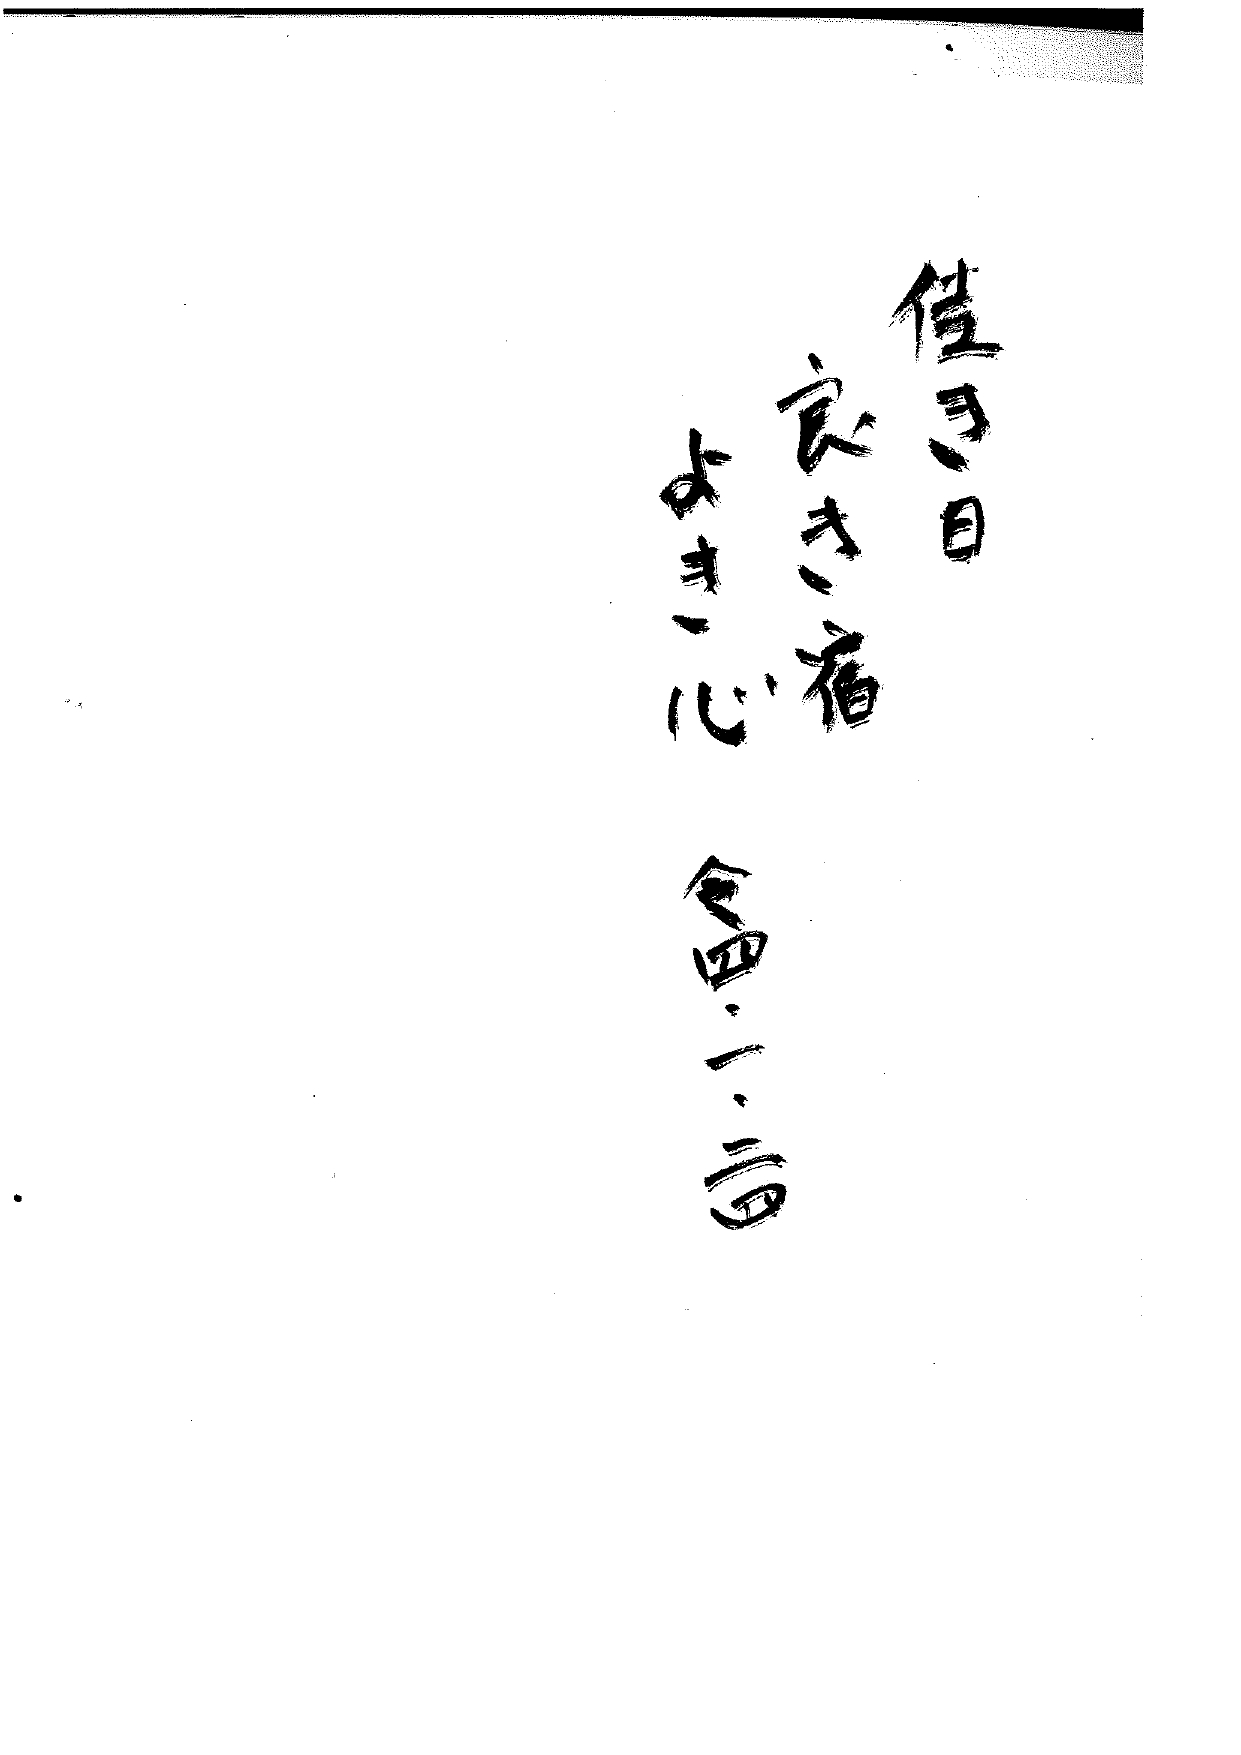 佳き日
良き宿
よき心 令四・一・二四